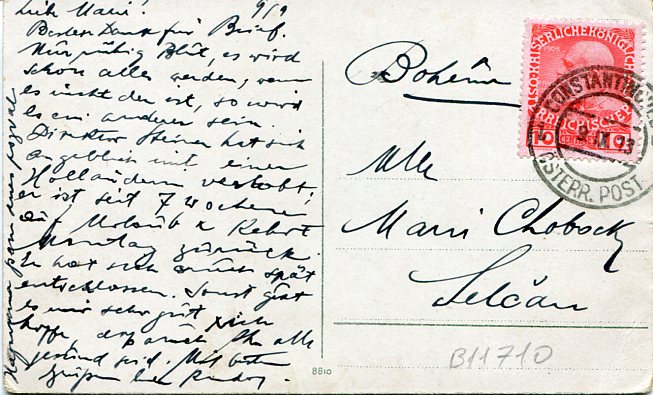 Liebe Mani! 9/9
Besten Dank für Brief.
Nur ruhig Blut, es wird
schon alles werden, wenn
es nicht der ist, so wird
es ein anderer sein.
Direktor Steiner hat sich
angeblich mit einer
Holländerin verlobt,
er ist seit 7 Wochen
auf Urlaub & kehrt
Montag zurück.
Er hat sich auch spät
entschlossen. Sonst geht
es mir sehr gut
hoffe, daß auch Ihr alle
gesund seid. Mit besten
Grüßen bin
Bohême
Mlle
Mani Chobocky
Selčan
KAISERLICHEKÖNIGLICHE
1908
ÖSTERREICHISCHE
10 10
CONSTANTINOPEL
9 IX 13
ÖSTERR. POST
B11710
8810